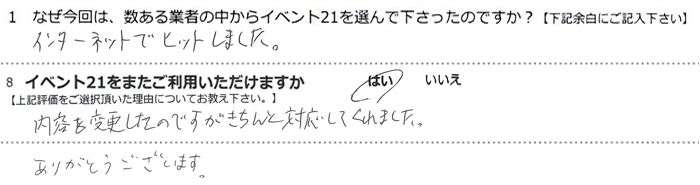 1 なぜ今回は、数ある業者の中からイベント21を選んで下さったのですか？【下記余白にご記入下さい】
インターネットでヒットしました。
8 イベント21をまたご利用いただけますか はい いいえ
【上記評価をご選択頂いた理由についてお教え下さい。】
内容を変更したのですがきちんと対応してくれました。
ありがとうございます。